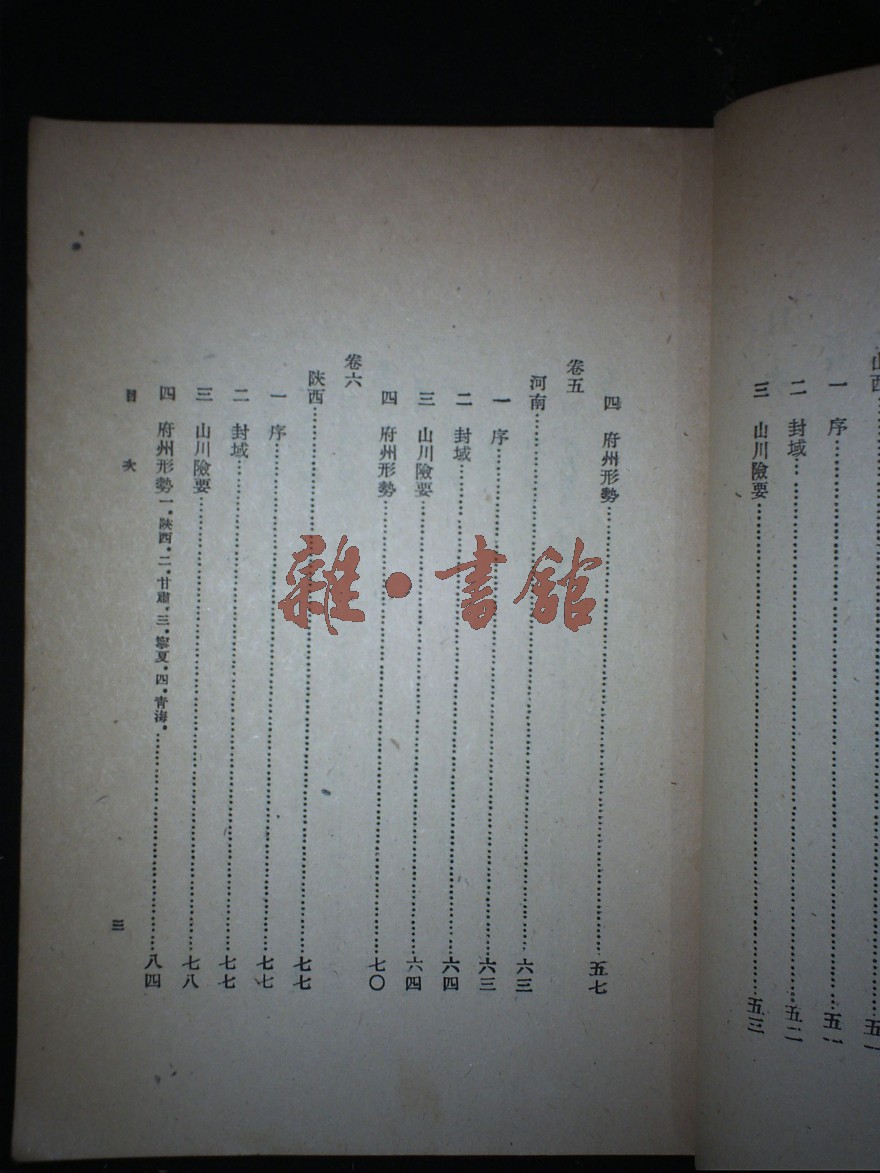 山西……五一
一 序……五一
二 封域……五二
三 山川險要……五三
四 府州形勢……五七
卷五
河南……六三
一 序……六三
二 封域……六四
三 山川險要……六四
四 府州形勢……七〇
卷六
陝西……七七
一 序……七七
二 封域……七七
三 山川險要……七八
四 府州形勢一．陝西．二．甘肅．三．寧夏．四．青海．……八四
目次
三
雜·書館